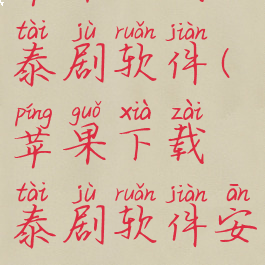 tài jù ruǎn jiàn
泰剧软件(
píng guǒ xià zài
苹果下载
tài jù ruǎn jiàn ān
泰剧软件安